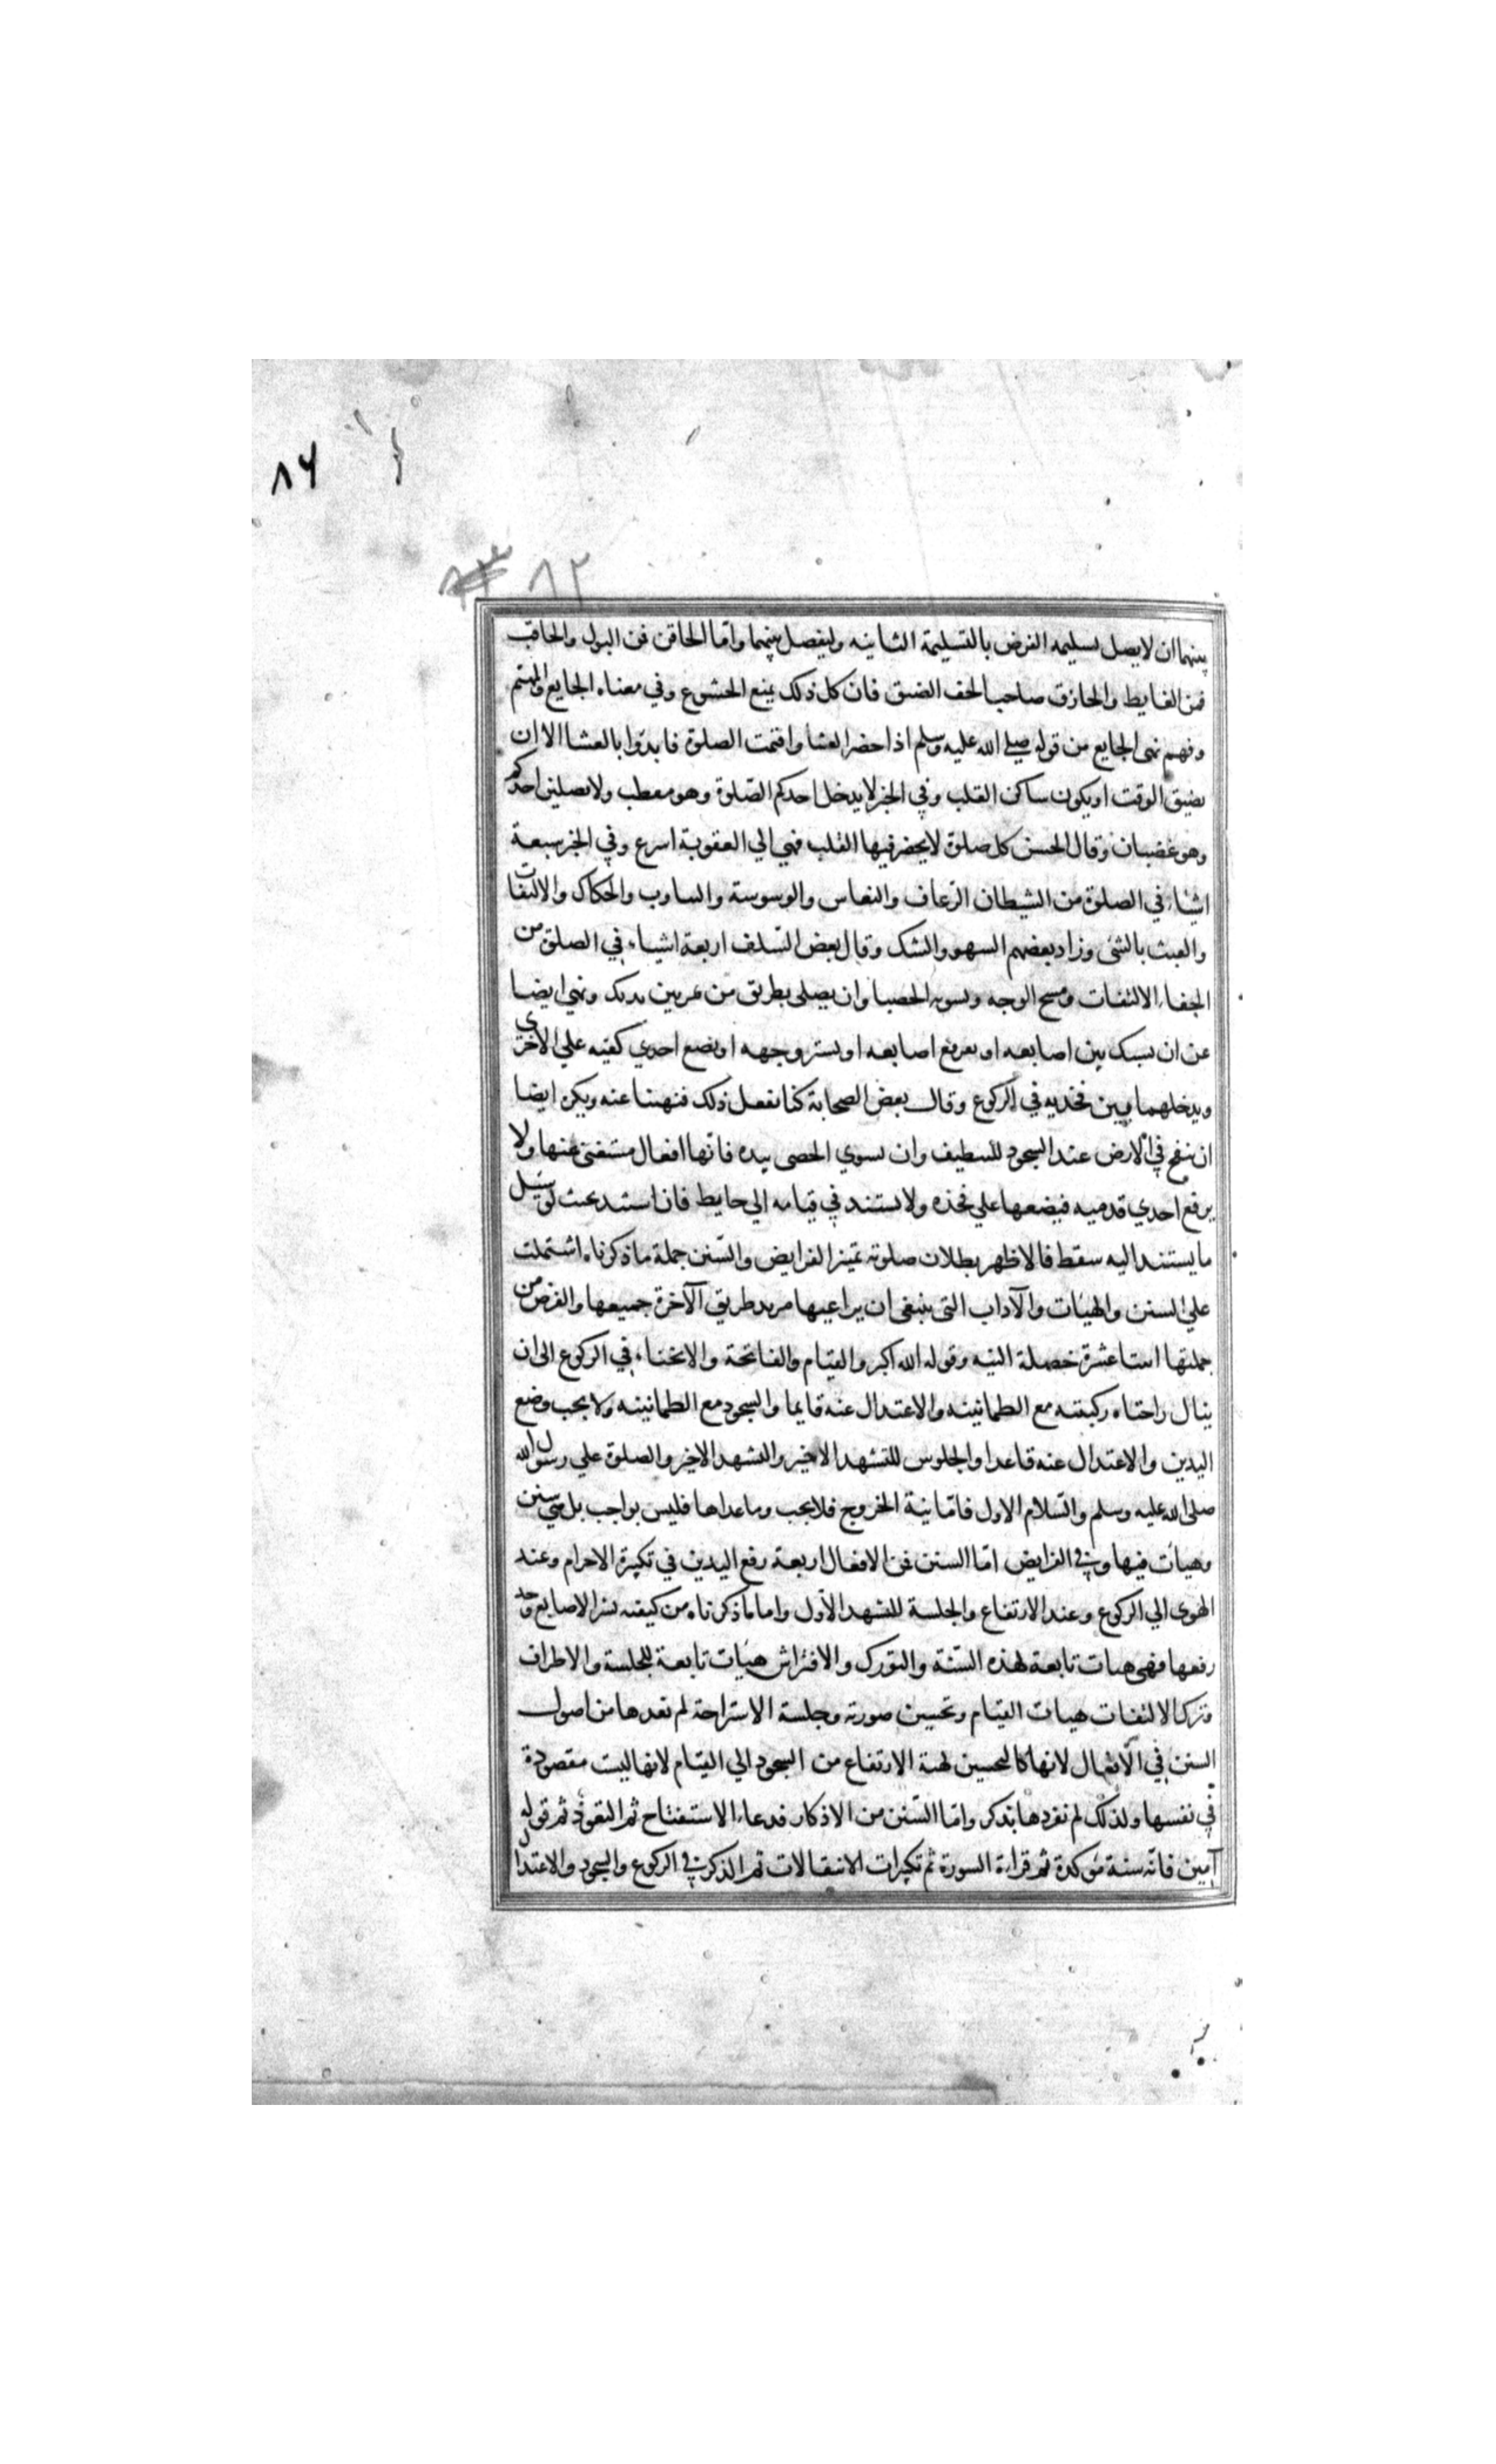 ٨٦
٨٣ ٨٢
بينهما ان لا يصل تسليمه الفرض بالتسليمة الثانيه وليفصل بينهما واما الحاقن فمن البول والحاقب
فمن الغايط والحازق صاحب الخف الضيق فان كل ذلك يمنع الخشوع وفي معناه الجايع والمهتم
وفهم نهي الجايع من قوله صلي الله عليه وسلم اذا حضر العشا واقيمت الصلوة فابدوا بالعشا الا ان
يضيق الوقت او يكون ساكن القلب وفي الخبر لا يدخل احدكم الصلوة وهو مقطب ولا يصلين احدكم
وهو غضبان وقال الحسن كل صلوة لا يحضر فيها القلب فهي الي العقوبة اسرع وفي الخبر سبعة
اشياء في الصلوة من الشيطان الرعاف والنعاس والوسوسة والتاوب والحكاك والالتفات
والعبث بالشئ وزاد بعضهم السهو والشك وقال بعض السلف اربعة اشياء في الصلوة من
الجفاء الالتفات ومسح الوجه وتسويه الحصبا وان يصلي بطريق من يمر بين يديك ونهي ايضا
عن ان يشبك بين اصابعه او يفرقع اصابعه او يستر وجهه او يضع احدي كفيه علي الاخري
ويدخلهما بين فخذيه في الركوع وقال بعض الصحابة كنا نفعل ذلك فنهينا عنه ويكره ايضا
ان ينفخ في الارض عند السجود للتنظيف وان يسوي الحصي بيده فانها افعال مستغني عنها ولا
يرفع احدي قدميه فيضعها علي فخذه ولا يستند في قيامه الي حايط فان استند بحيث لو سل
ما يستند اليه سقط فالاظهر بطلان صلوته تميز الفرايض والسنن جملة ما ذكرناه اشتملت
علي السنن والهيئات والآداب التي ينبغي ان يراعيها مريد طريق الآخرة جميعها والفرض من
جملتها اثنتا عشرة خصلة النيه وقوله الله اكبر والقيام والفاتحة والانحناء في الركوع الى ان
ينال راحتاه ركبتيه مع الطمانينه والاعتدال عنه قايما والسجود مع الطمانينه ولا يجب وضع
اليدين والاعتدال عنه قاعدا والجلوس للتشهد الاخير والتشهد الاخير والصلوة علي رسول الله
صلى الله عليه وسلم والسلام الاول فاما نية الخروج فلا يجب وما عداها فليس بواجب بل هي سنن
وهيات فيها وفي الفرايض اما السنن فمن الافعال اربعة رفع اليدين في تكبيرة الاحرام وعند
الهوي الي الركوع وعند الارتفاع والجلسة للتشهد الاول واما ما ذكرناه من كيفيه نشر الاصابع وحد
رفعها فهي هيات تابعة لهذه السنة والتورك والافتراش هيئات تابعة للجلسة والاطراق
وترك الالتفات هيات القيام وتحسين صورته وجلسة الاستراحة لم نعدها من اصول
السنن في الافعال لانها كالتحسين لهيئة الارتفاع من السجود الي القيام لانها ليست مقصودة
في نفسها ولذلك لم نفردها بذكر واما السنن من الاذكار فدعاء الاستفتاح ثم التعوذ ثم قوله
آمين فانه سنة مؤكدة ثم قراءة السورة ثم تكبيرات الانتقالات ثم الذكر في الركوع والسجود والاعتدال